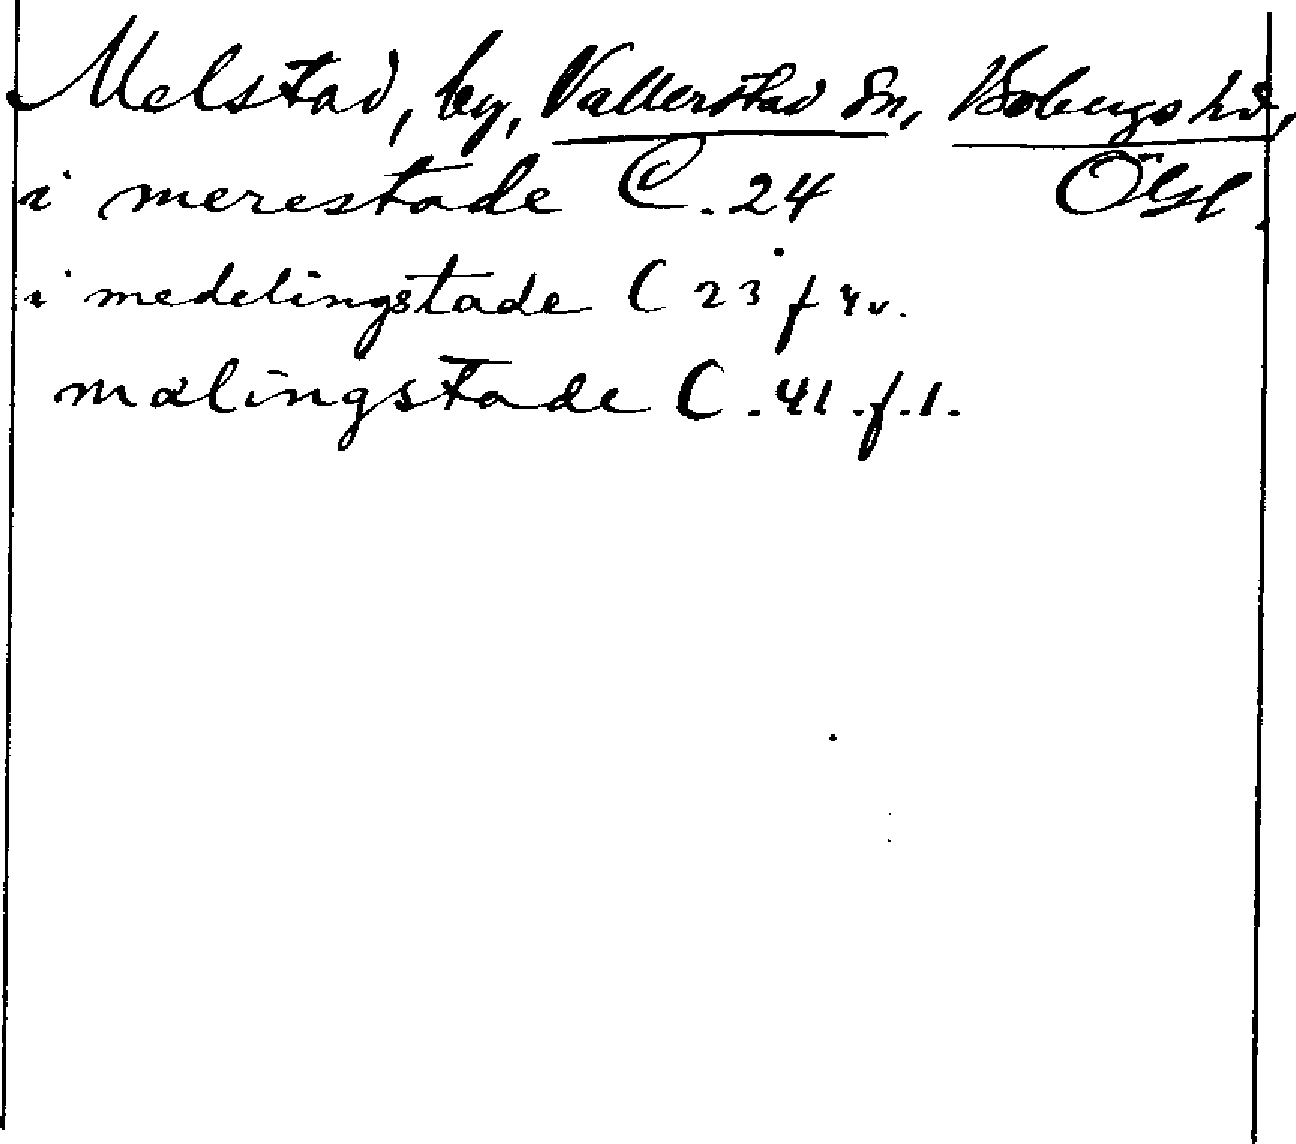 Melstad, by, Vallerstad sn, Bobergs hd,
i merestade C. 24 Ögl.
i medelingstade C 23 f 4v.
mälingstade C. 41. f. 1.